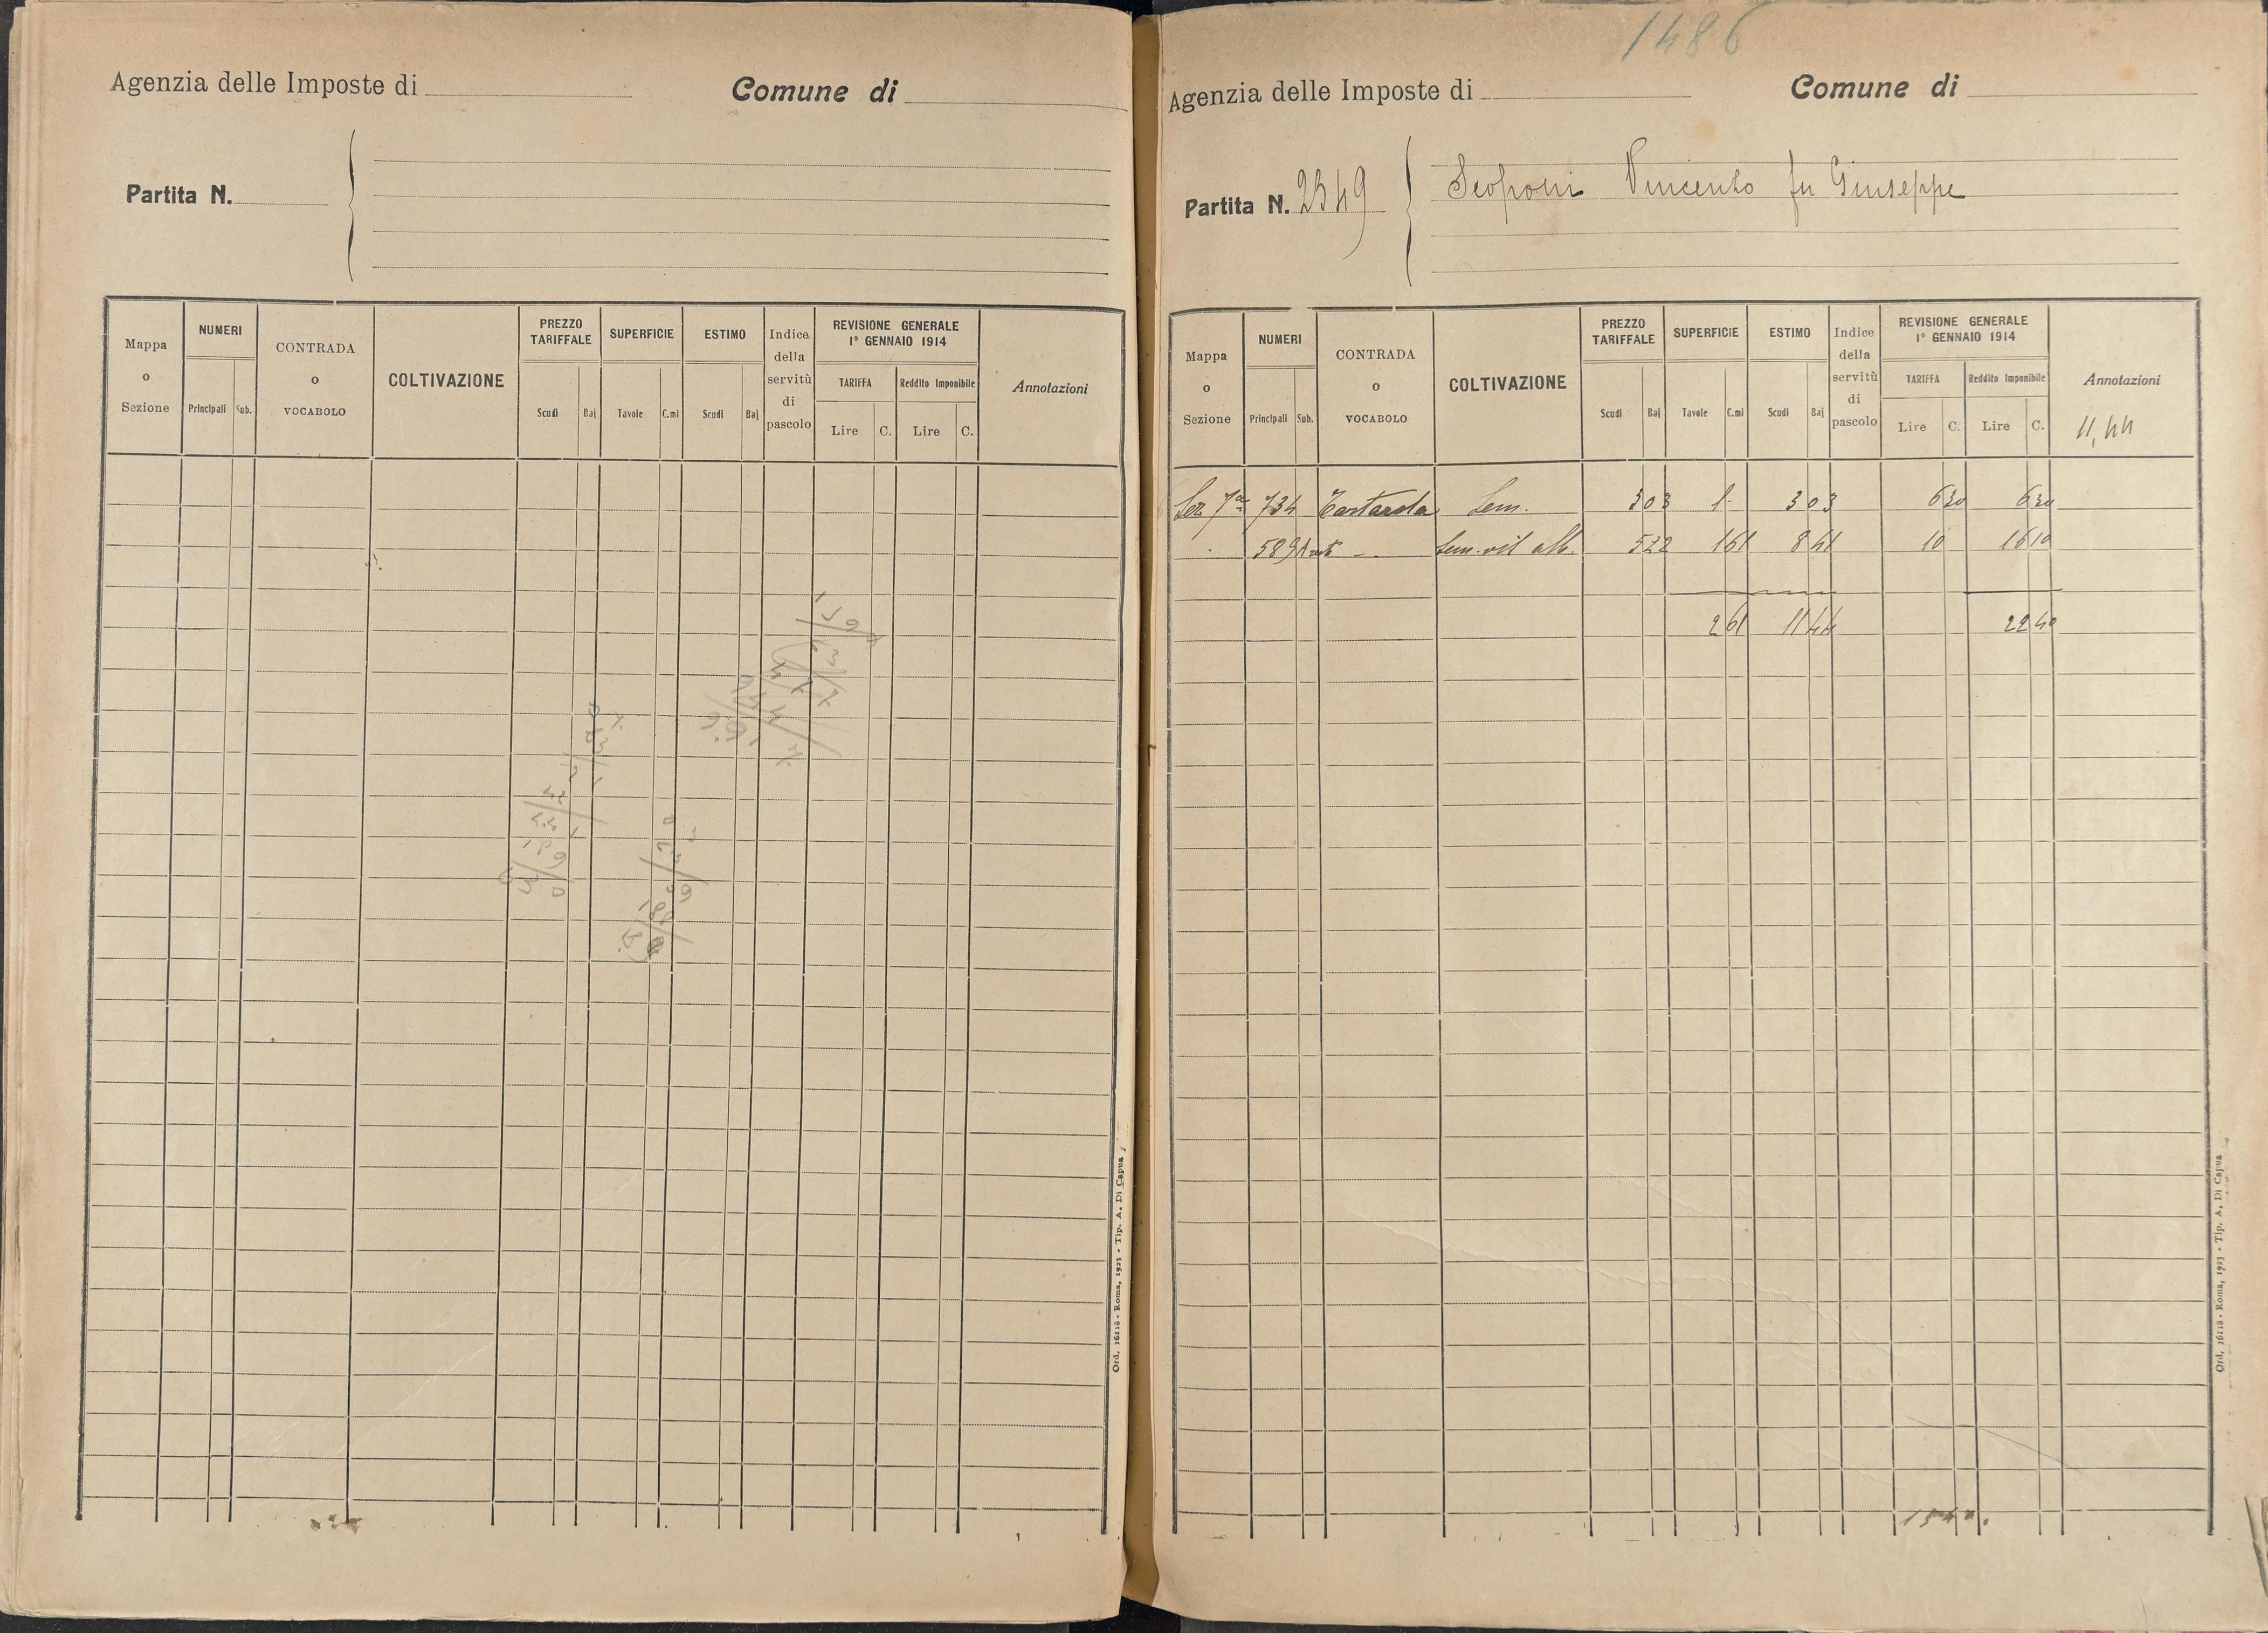 Agenzia delle Imposte di
Comune di
Partita N.
Mappa o Sezione
NUMERI
Principali
Sub.
CONTRADA o VOCABOLO
COLTIVAZIONE
PREZZO TARIFFALE
Scudi
Baj
SUPERFICIE
Tavole
C.mi
ESTIMO
Scudi
Baj
Indice della servitù di pascolo
REVISIONE GENERALE
1° GENNAIO 1914
TARIFFA
Reddito Imponibile
Lire
C.
Lire
C.
Annotazioni
Ord. 16118 - Roma, 1923 - Tip. A. Di Capua
1486
Agenzia delle Imposte di
Comune di
Partita N. 2349
Scoponi Vincenzo fu Giuseppe
Mappa o Sezione
NUMERI
Principali
Sub.
CONTRADA o VOCABOLO
COLTIVAZIONE
PREZZO TARIFFALE
Scudi
Baj
SUPERFICIE
Tavole
C.mi
ESTIMO
Scudi
Baj
Indice della servitù di pascolo
REVISIONE GENERALE
1° GENNAIO 1914
TARIFFA
Reddito Imponibile
Lire
C.
Lire
C.
Annotazioni
11,44
Sez 7a 734 Sem. 3 03 1 - 3 03 6 30 6 30
589 Sem. vit alb. 5 22 1 61 8 41 10 16 10
2 61 11 44 22 40
Ord. 16118 - Roma, 1923 - Tip. A. Di Capua